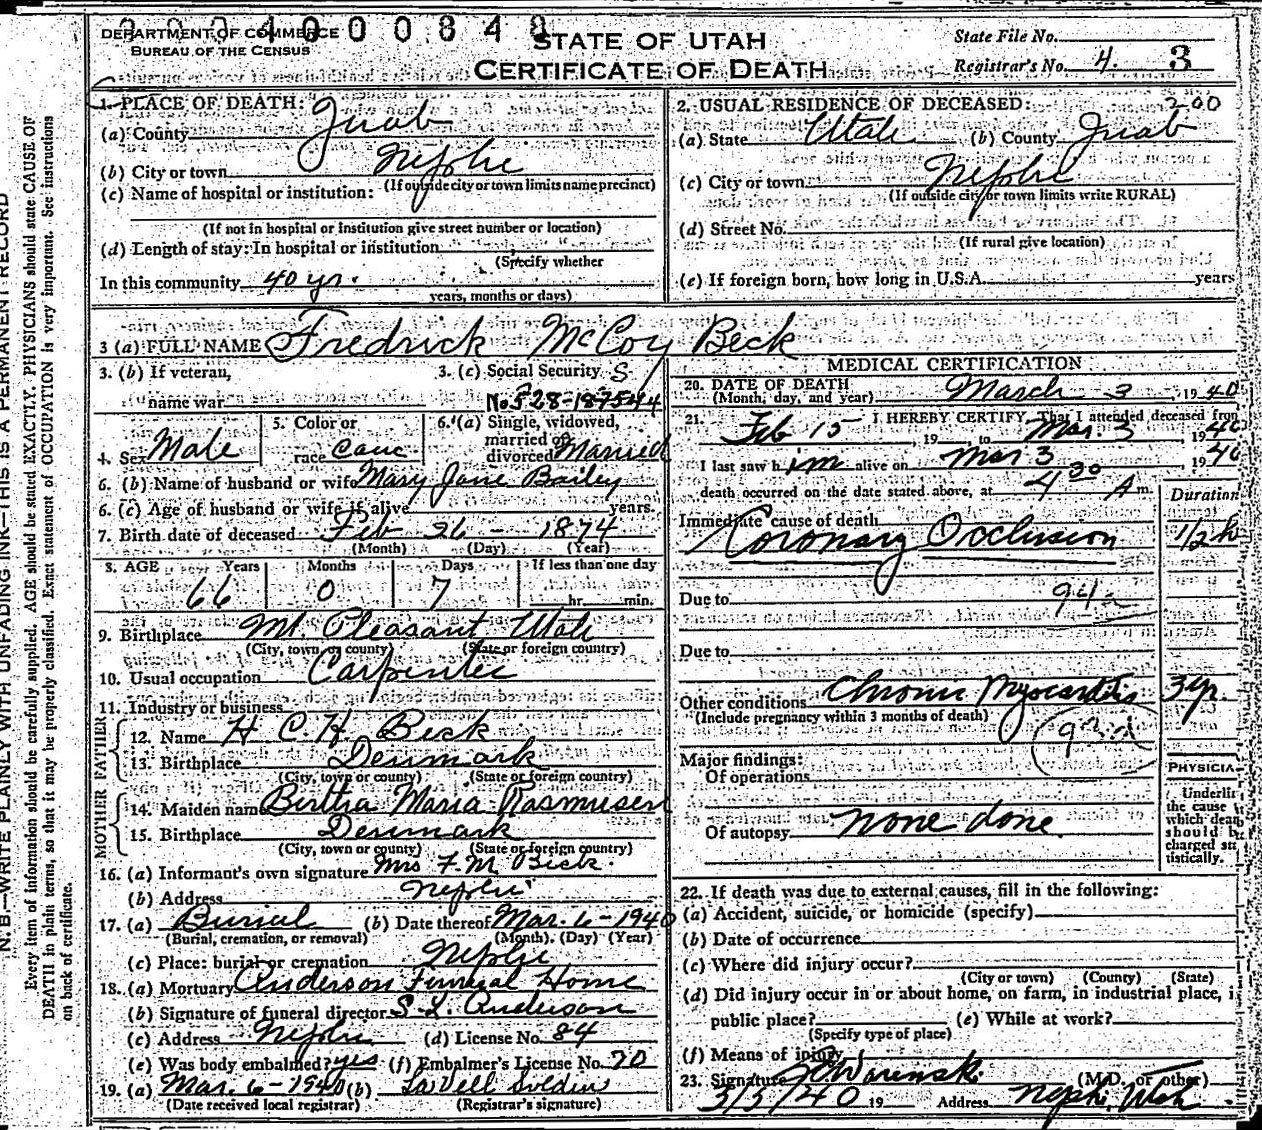 DEPARTMENT OF COMMERCE
BUREAU OF THE CENSUS
STATE OF UTAH
CERTIFICATE OF DEATH
State File No.
Registrar's No. 4. 3
1. PLACE OF DEATH:
(a) County Juab
(b) City or town Nephi
(If outside city or town limits name precinct)
(c) Name of hospital or institution:
(If not in hospital or institution give street number or location)
(d) Length of stay: In hospital or institution
(Specify whether
In this community 40 yr.
years, months or days)
2. USUAL RESIDENCE OF DECEASED: 200
(a) State Utah (b) County Juab
(c) City or town Nephi
(If outside city or town limits write RURAL)
(d) Street No.
(If rural give location)
(e) If foreign born, how long in U.S.A. years
3 (a) FULL NAME Fredrick McCoy Beck
3. (b) If veteran,
name war
3. (c) Social Security
No. 528-18-7544
4. Sex Male
5. Color or
race Cauc
6. (a) Single, widowed,
married or
divorced Married
6. (b) Name of husband or wife Mary Jane Bailey
6. (c) Age of husband or wife if alive years.
7. Birth date of deceased Feb 26 - 1874
(Month) (Day) (Year)
8. AGE Years Months Days If less than one day
66 0 7 hr. min.
9. Birthplace Mt. Pleasant Utah
(City, town or county) (State or foreign country)
10. Usual occupation Carpenter
11. Industry or business
FATHER
12. Name H C. H. Beck
13. Birthplace Denmark
(City, town or county) (State or foreign country)
MOTHER
14. Maiden name Birtha Maria Rasmusen
15. Birthplace Denmark
(City, town or county) (State or foreign country)
16. (a) Informant's own signature Mrs F. M. Beck.
(b) Address Nephi
17. (a) Burial (b) Date thereof Mar. 6 - 1940
(Burial, cremation, or removal) (Month). (Day) (Year)
(c) Place: burial or cremation Nephi
18. (a) Mortuary Anderson Funeral Home
(b) Signature of funeral director S. L. Anderson
(c) Address Nephi (d) License No. 84
(e) Was body embalmed? yes (f) Embalmer's License No. 70
19. (a) Mar. 6 - 1940 (b) LaVell
(Date received local registrar) (Registrar's signature)
MEDICAL CERTIFICATION
20. DATE OF DEATH March 3, 1940
(Month, day, and year)
21. I HEREBY CERTIFY, That I attended deceased from
Feb 15, 19 to Mar. 3 1940
I last saw him alive on Mar 3, 1940
death occurred on the date stated above, at 4 30 A m.
Duration
Immediate cause of death
Coronary Occlusion 1/2 h
Due to 94a
Due to
Other conditions Chronic Myocarditis 3 yr.
(Include pregnancy within 3 months of death)
93d
Major findings:
Of operations
Of autopsy none done.
PHYSICIA
Underlin
the cause
which deat
should b
charged sta
tistically.
22. If death was due to external causes, fill in the following:
(a) Accident, suicide, or homicide (specify)
(b) Date of occurrence
(c) Where did injury occur?
(City or town) (County) (State)
(d) Did injury occur in or about home, on farm, in industrial place, i
public place? (e) While at work?
(Specify type of place)
(f) Means of injury
23. Signature (M.D. or other)
3/3/40 19 Address Nephi, Utah
N. B.—WRITE PLAINLY WITH UNFADING INK—THIS IS A PERMANENT RECORD
Every item of information should be carefully supplied. AGE should be stated EXACTLY. PHYSICIANS should state CAUSE OF
DEATH in plain terms, so that it may be properly classified. Exact statement of OCCUPATION is very important. See instructions
on back of certificate.